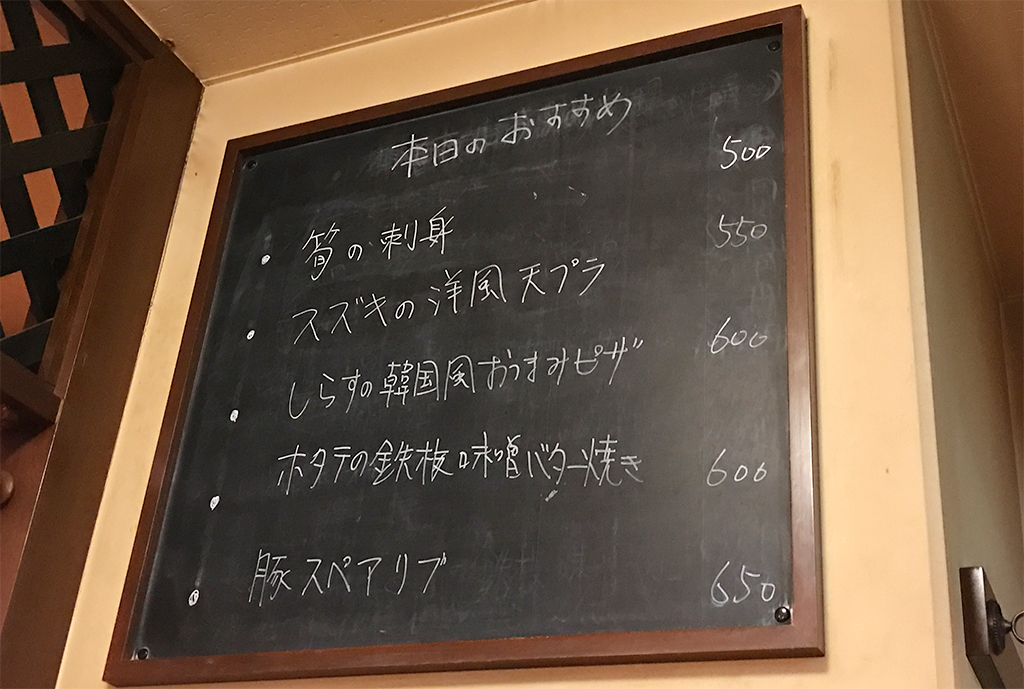 本日のおすすめ
・筍の刺身 500
・スズキの洋風天プラ 550
・しらすの韓国風おつまみピザ 600
・ホタテの鉄板味噌バター焼き 600
・豚スペアリブ 650